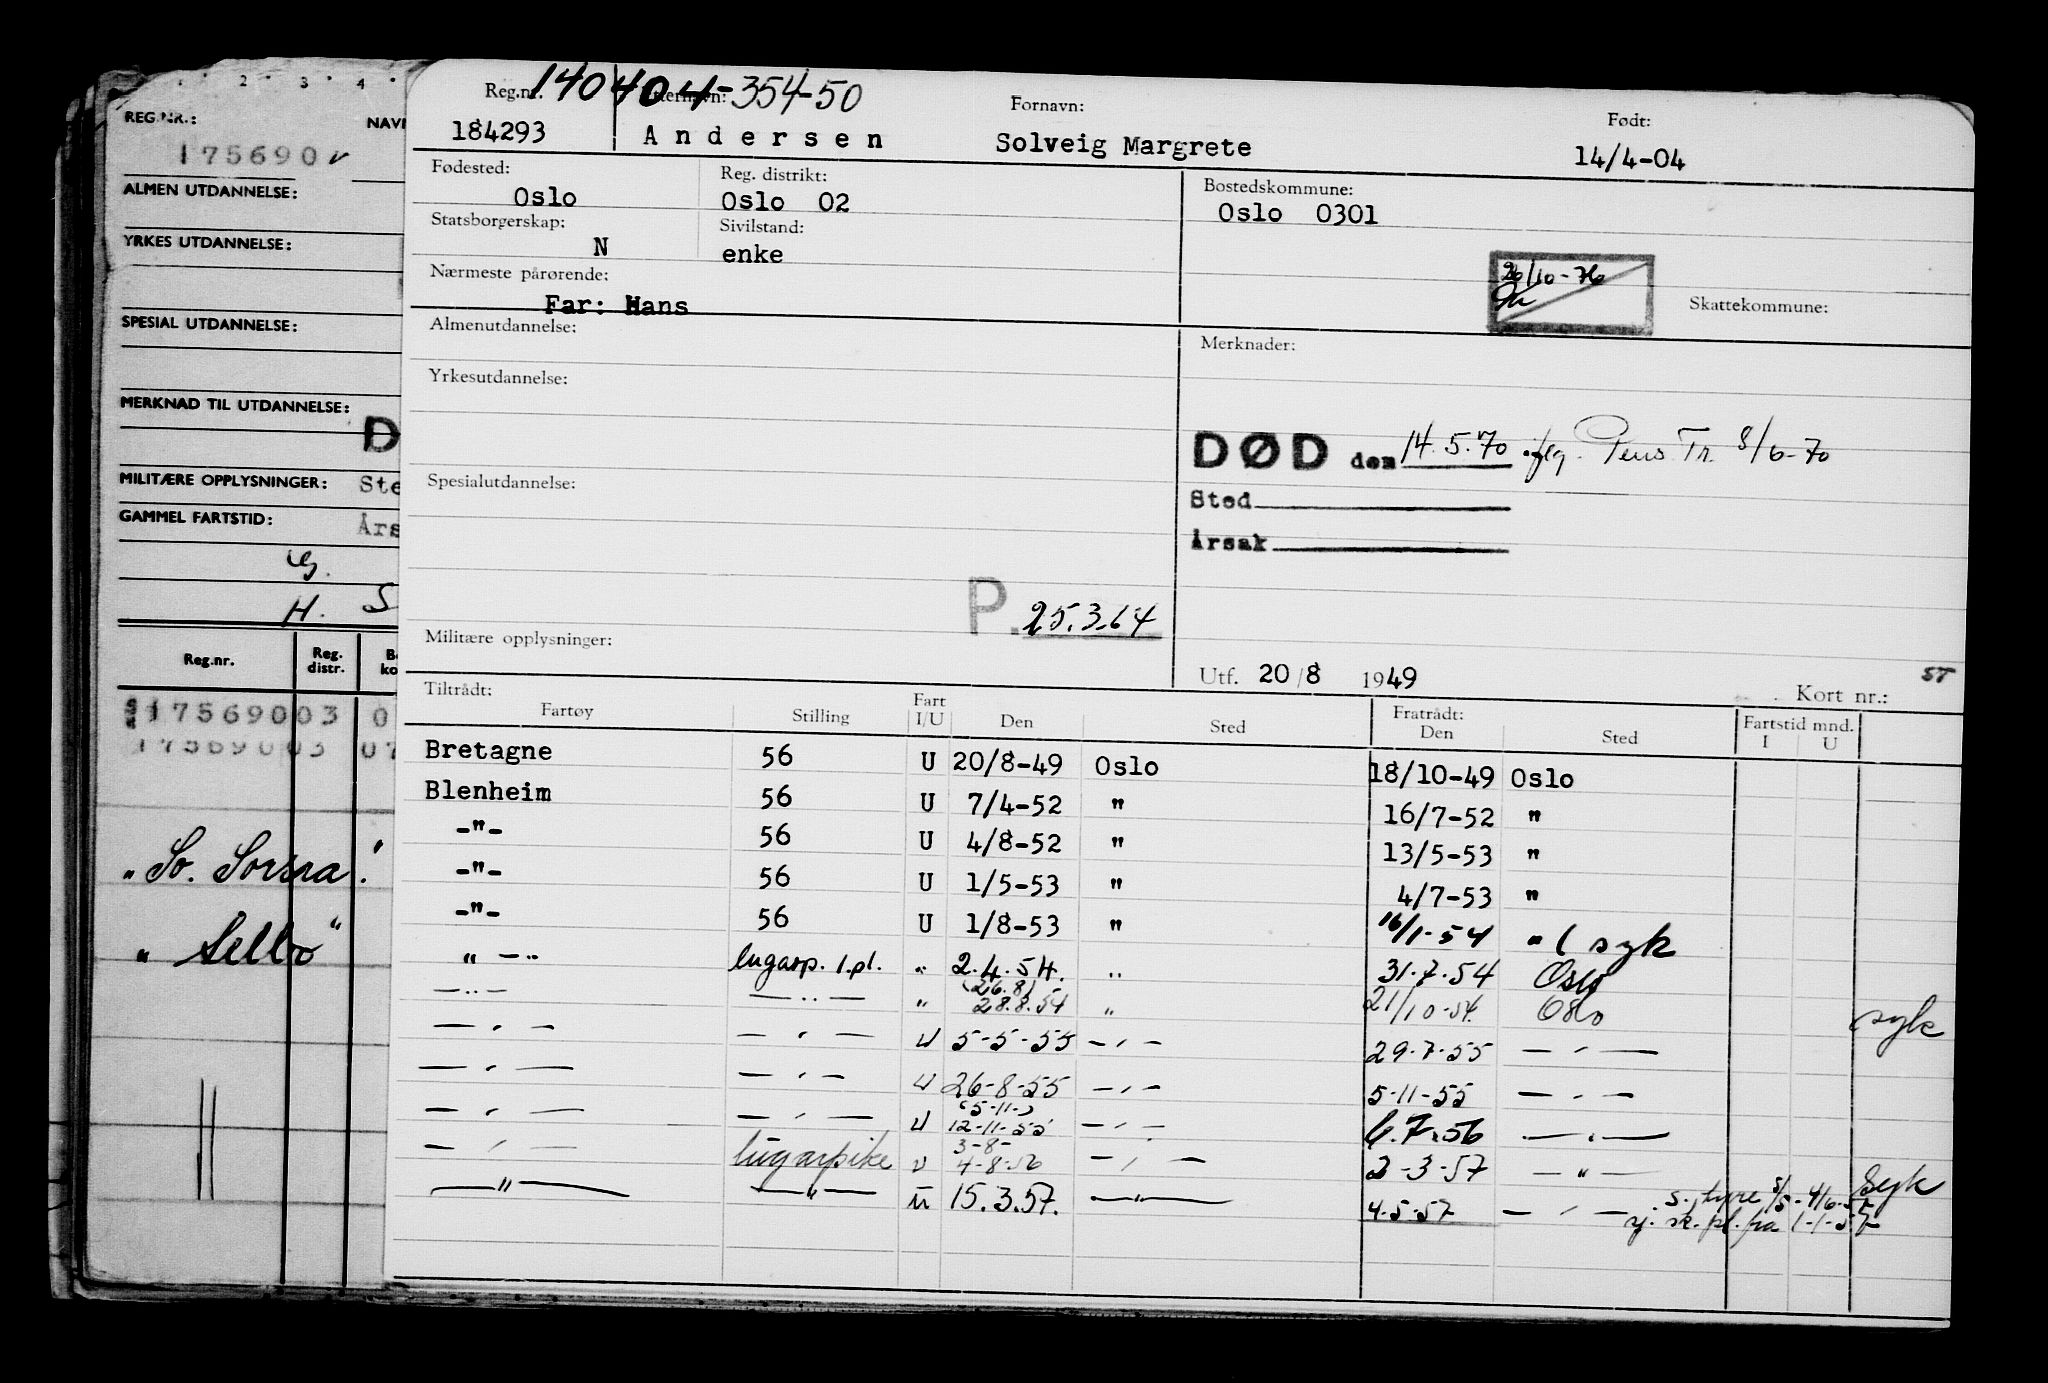 1 2 3 4
REG.NR.: NAVN
175690 v
ALMEN UTDANNELSE:
YRKES UTDANNELSE:
SPESIAL UTDANNELSE:
MERKNAD TIL UTDANNELSE:
D
MILITÆRE OPPLYSNINGER: Ste
GAMMEL FARTSTID: Års
G.
H. S
Reg.nr. Reg. distr. B ko
17569003 0
17569003 07
"So. Sorsra".
"Sello"
140404-354-50
Reg.nr. Etternavn: Fornavn: Født:
184293 Andersen Solveig Margrete 14/4-04
Fødested: Reg. distrikt: Bostedskommune:
Oslo Oslo 02 Oslo 0301
Statsborgerskap: Sivilstand:
N enke
Nærmeste pårørende: 26/10-76 Skattekommune:
Far: Hans
Almenutdannelse: Merknader:
Yrkesutdannelse:
DØD den 14.5.70 iflg. Pens. Tr. 8/6-70
Spesialutdannelse: Sted
Årsak
P. 25.3.64
Militære opplysninger:
Utf. 20/8 1949 Kort nr.: ST
Tiltrådt: Fratrådt: Fartstid mnd.
Fartøy Stilling Fart I/U Den Sted Den Sted I U
Bretagne 56 U 20/8-49 Oslo 18/10-49 Oslo
Blenheim 56 U 7/4-52 " 16/7-52 "
-"- 56 U 4/8-52 " 13/5-53 "
-"- 56 U 1/5-53 " 4/7-53 "
-"- 56 U 1/8-53 " 16/1-54 " ( syk
"-" lugarp. 1.pl. " 2.4.54. " 31.7.54 Oslo
-"- -"- " (26.8) 28.8.54 " 21/10-54. Oslo syk
-"- -"- U 5-5-55 -"- 29.7.55 -"-
-"- -"- U 26-8-55 -"- 5-11-55 -"-
-"- -"- U (5-11-) 12-11-55 -"- 6.7.56 -"-
-"- lugarpike U 3-8- 4-8-56 -"- 2-3-57 -"- Syk
-"- -"- U 15.3.57. -"- 4-5-57 -"- s. hyre 8/5-4/6-57
sj. sk. pl. fra 1-1-57